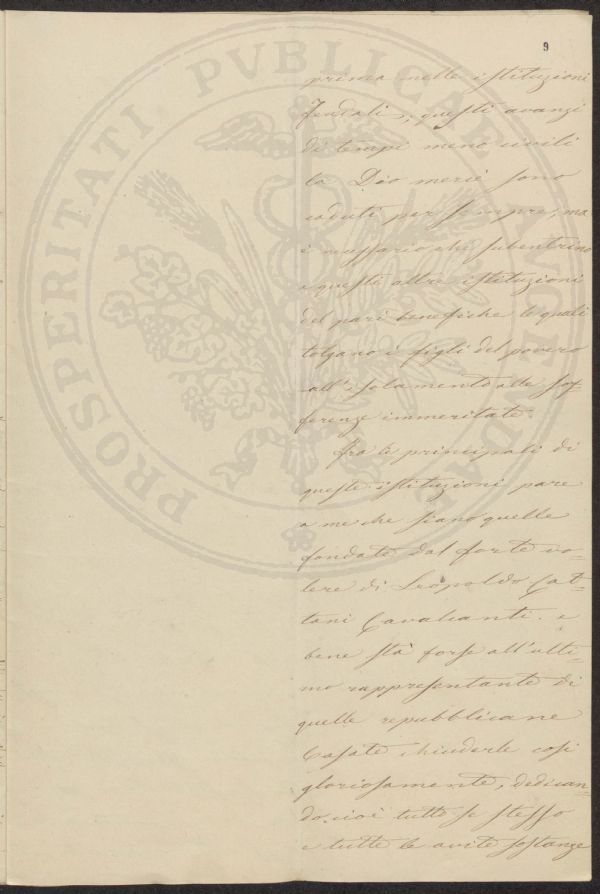 9
prima nelle istituzioni
feudali, questi avanzi
di tempi meno civili
la Dio mercè sono
caduti per sempre, ma
è necessario che subentrino
a queste altre istituzioni
del pari benefiche le quali
tolgano i figli del povero
all'isolamento alle sof-
ferenze immeritate.
Fra le principali di
queste istituzioni pare
a me che siano quelle
fondate dal forte vo-
lere di Leopoldo Cat-
tani Cavalcanti. e
bene sta forse all'ulti-
mo rappresentante di
quelle repubblicane
Casate chiuderle così
gloriosamente, dedican-
do cioè tutto se stesso
e tutte le avite sostanze
PROSPERITATI PVBLICAE AVGENDAE